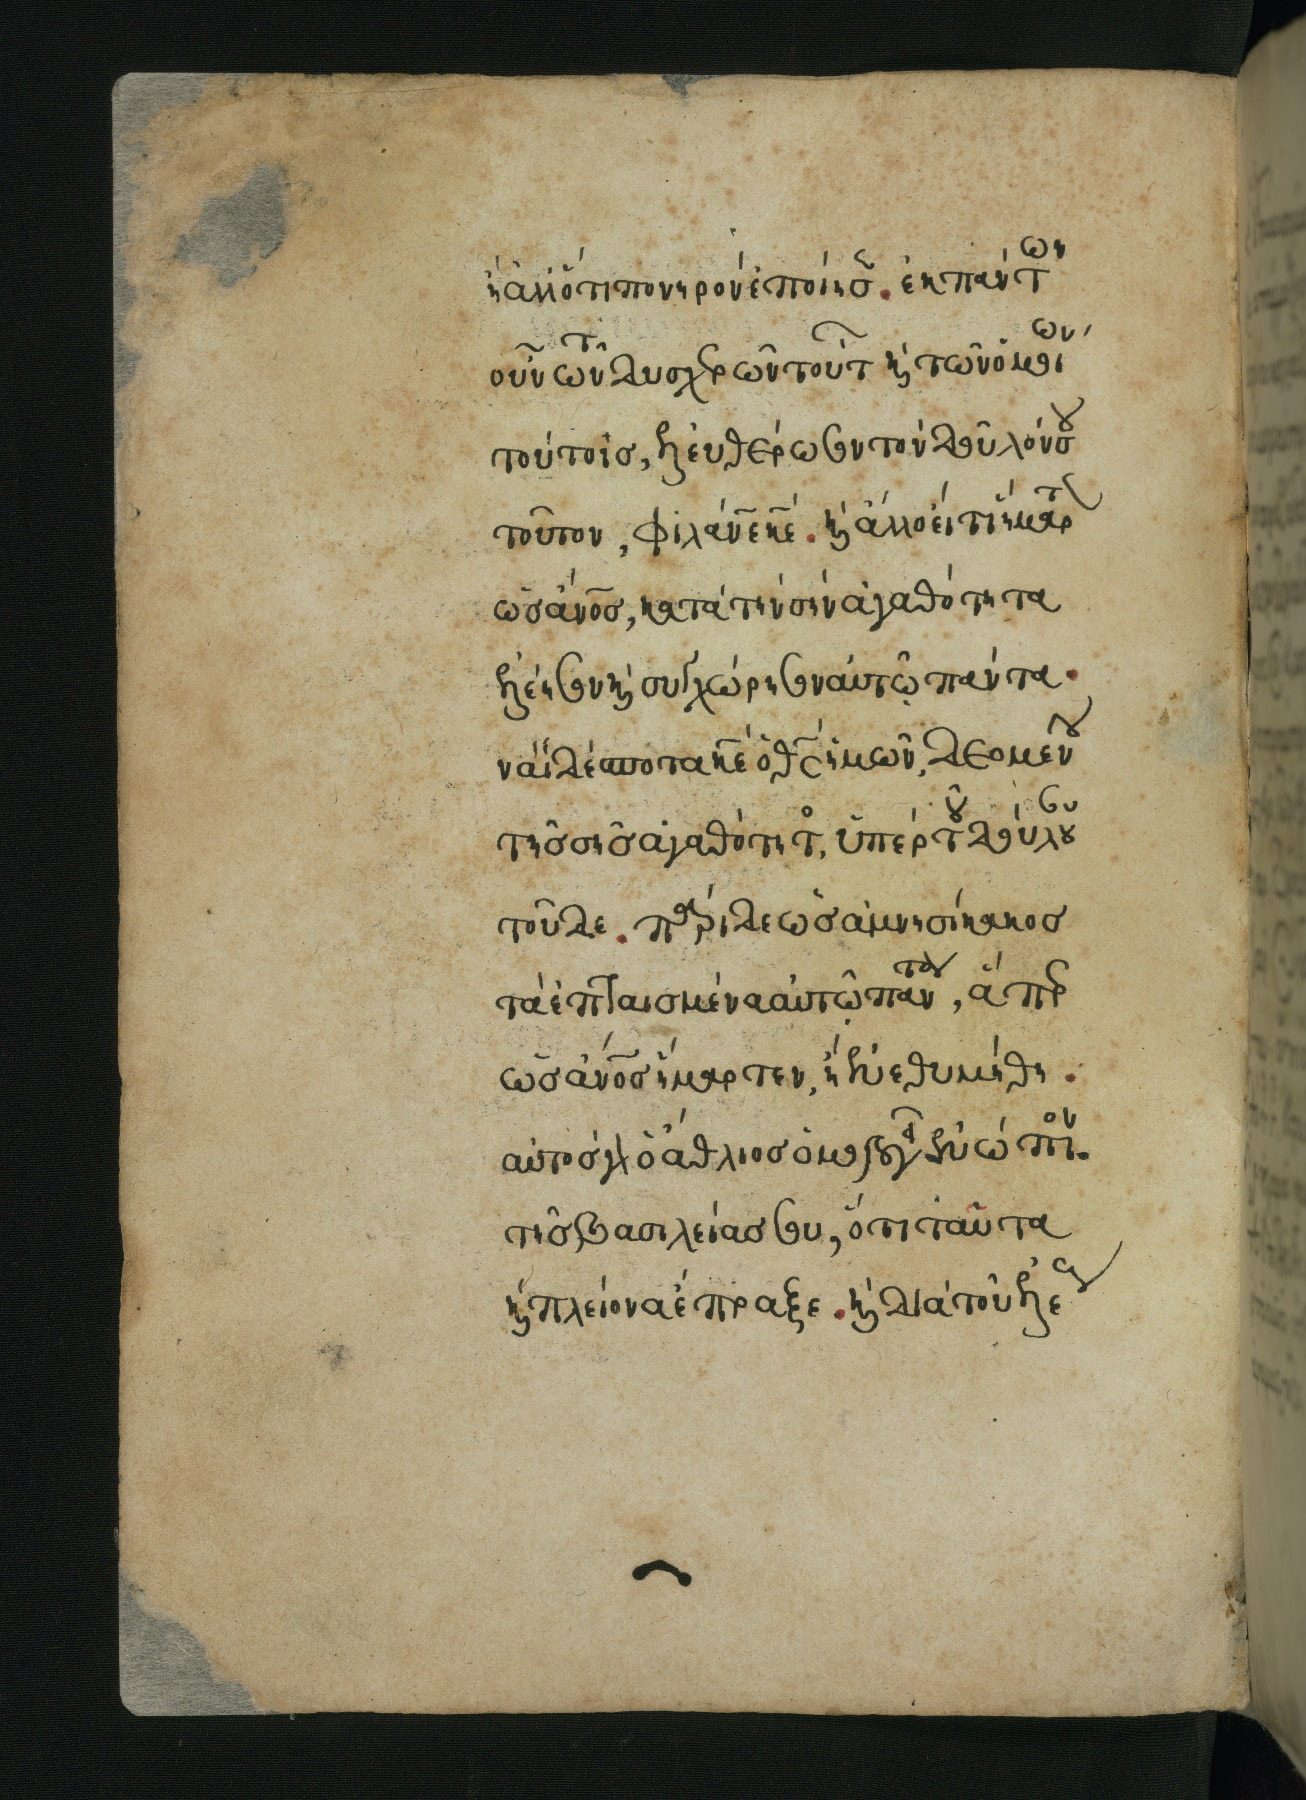 ἢ ἄλλό τι πονηρὸν ἐποίησε. ἐκ πάντων
οὖν τῶν δυσχερῶν τούτων κ τῶν ὁμοίων
τούτοις, ἐξελευθέρωσον τὸν δοῦλόν σου
τοῦτον, φιλάνε κε. κ ἄλλο εἴ τι ἥμαρτε
ὡς ἄνος, κατὰ τὴν σὴν ἀγαθότητα
κ συγχώρησον αὐτῷ πάντα.
ναὶ δέσποτα κε ὁ θς ἡμῶν, δεομένου
τῆς σῆς ἀγαθότητος, ὑπὲρ τοῦ δούλου σου
τοῦδε. πάριδε ὡς ἀμνησίκακος
τὰ ἐπταισμένα αὐτῷ πάντα, ἅπερ
ὡς ἄνος ἥμαρτεν, ἢ ἐνεθυμήθη.
αὐτὸς γὰρ ὁ ἄθλιος ὁμολογεῖ ἐνώπιον
τῆς βασιλείας σου, ὅτι ταῦτα
κ πλείονα ἔπραξε. κ διὰ τοῦ ἐξε